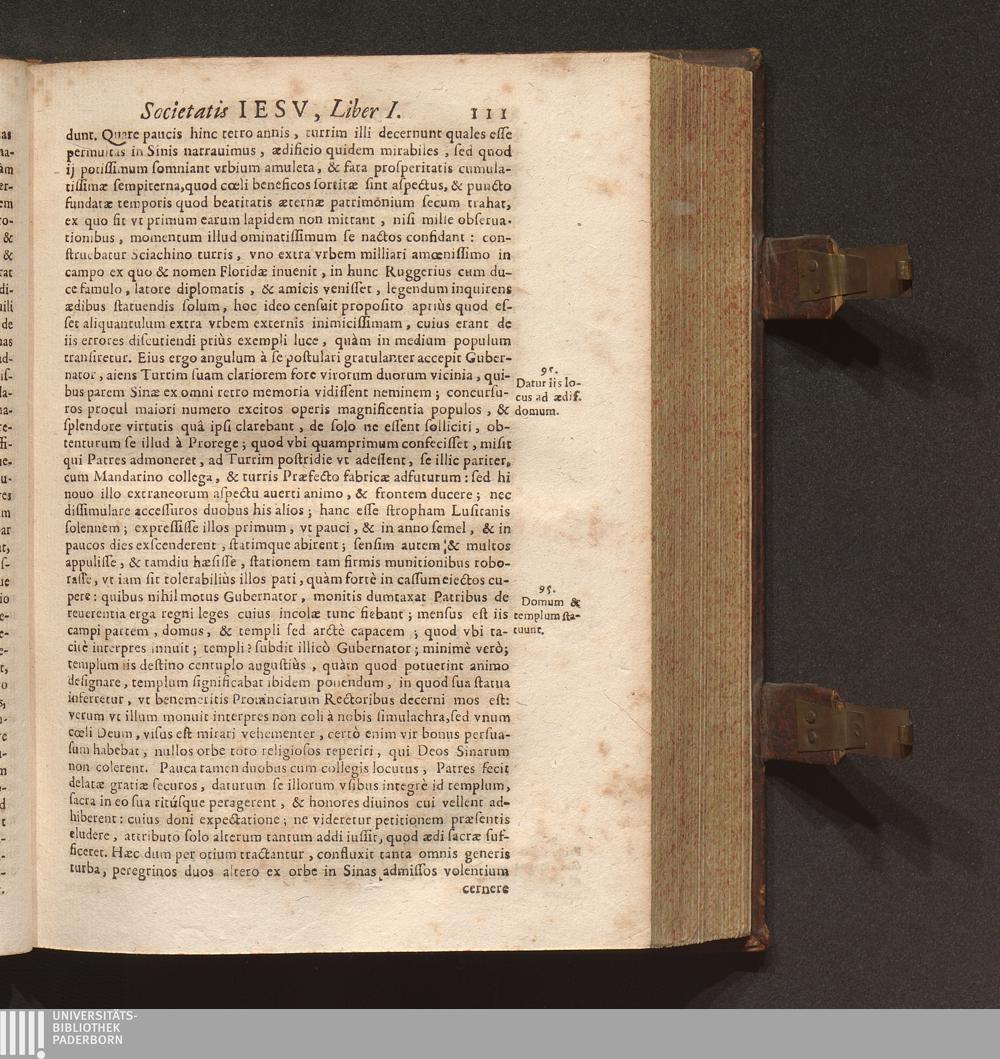 Societatis IESV, Liber I. 111
dunt. Quare paucis hinc retro annis, turrim illi decernunt quales esse
permultas in Sinis narrauimus, ædificio quidem mirabiles, sed quod
ij potissimum somniant vrbium amuleta, & fata prosperitatis cumula-
tissimæ sempiterna, quod cœli beneficos sortitæ sint aspectus, & puncto
fundatæ temporis quod beatitatis æternæ patrimonium secum trahat,
ex quo fit vt primum earum lapidem non mittant, nisi mille obserua-
tionibus, momentum illud ominatissimum se nactos confidant: con-
struebatur Sciachino turris, vno extra vrbem milliari amœnissimo in
campo ex quo & nomen Floridæ inuenit, in hunc Ruggerius cum du-
ce famulo, latore diplomatis, & amicis venisset, legendum inquirens
ædibus statuendis solum, hoc ideo censuit proposito aptiùs quod es-
set aliquantulum extra vrbem externis inimicissimam, cuius erant de
iis errores discutiendi priùs exempli luce, quàm in medium populum
transiretur. Eius ergo angulum à se postulari gratulanter accepit Guber-
nator, aiens Turrim suam clariorem fore virorum duorum vicinia, qui-
bus parem Sinæ ex omni retro memoria vidissent neminem; concursu-
ros procul maiori numero excitos operis magnificentia populos, &
splendore virtutis quâ ipsi clarebant, de solo ne essent solliciti, ob-
tenturum se illud à Prorege; quod vbi quamprimum confecisset, misit
qui Patres admoneret, ad Turrim postridie vt adessent, se illic pariter,
cum Mandarino collega, & turris Præfecto fabricæ adfuturum: sed hi
nouo illo extraneorum aspectu auerti animo, & frontem ducere; nec
dissimulare accessuros duobus his alios; hanc esse stropham Lusitanis
solennem; expressisse illos primum, vt pauci, & in anno semel, & in
paucos dies exscenderent, statimque abirent; sensim autem & multos
appulisse, & tamdiu hæsisse, stationem tam firmis munitionibus robo-
rasse, vt iam sit tolerabiliùs illos pati, quàm fortè in cassum eiectos cu-
pere: quibus nihil motus Gubernator, monitis dumtaxat Patribus de
reuerentia erga regni leges cuius incolæ tunc fiebant; mensus est iis
campi partem, domus, & templi sed arctè capacem; quod vbi ta-
citè interpres innuit; templi? subdit illicò Gubernator; minimè verò;
templum iis destino centuplo augustiùs, quàm quod potuerint animo
designare, templum significabat ibidem ponendum, in quod sua statua
inferretur, vt benemeritis Prouinciarum Rectoribus decerni mos est:
verum vt illum monuit interpres non coli à nobis simulachra, sed vnum
cœli Deum, visus est mirari vehementer, certò enim vir bonus persua-
sum habebat, nullos orbe toto religiosos reperiri, qui Deos Sinarum
non colerent. Pauca tamen duobus cum collegis locutus, Patres fecit
delatæ gratiæ securos, daturum se illorum vsibus integrè id templum,
sacra in eo sua ritúsque peragerent, & honores diuinos cui vellent ad-
hiberent: cuius doni expectatione; ne videretur petitionem præsentis
eludere, attributo solo alterum tantum addi iussit, quod ædi sacræ suf-
ficeret. Hæc dum per otium tractantur, confluxit tanta omnis generis
turba, peregrinos duos altero ex orbe in Sinas admissos volentium
cernere
Datur iis lo-
cus ad ædif.
domum.
95.
Domum &
templum sta-
tuunt.
as
na-
àm
er-
em
ro-
&
&
rat
di-
ili
de
nas
ad-
UNIVERSITÄTS-
BIBLIOTHEK
PADERBORN